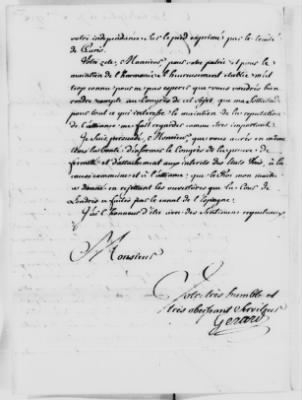 votre indépendance sur le pied exprimé par le traité
de Paris.
Votre zele, Monsieur, pour votre patrie et pour le
maintien de l'harmonie si heureusement établie m'est
trop connu pour ne pas esperer que vous voudrés bien
rendre compte au Congrès de cet objet, que ma sollicitude
pour tout ce qui interesse le maintien de la reputation
de l'alliance me fait regarder comme très important.
Je suis persuadé, Monsieur, que vous aurés en même
tems la bonté d'informer le Congrès de la preuve de
fermeté et d'attachement aux interets des Etats Unis, à la
cause commune et à l'alliance, que le Roi mon maitre
a donnée en rejettant les ouvertures que la Cour de
Londres a faites par le canal de l'Espagne.
J'ai l'honneur d'être avec des sentimens respectueux,
Monsieur
Votre très humble et
très obeissant Serviteur
Gerard